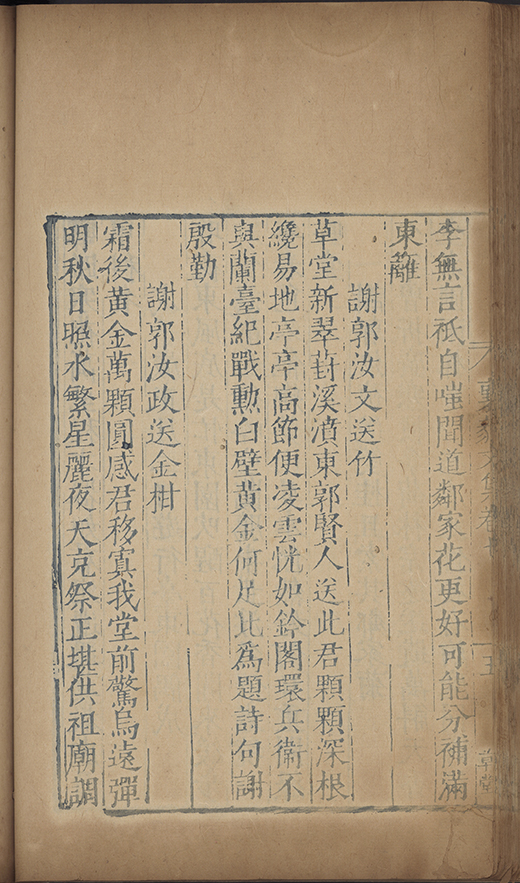 李無言祇自嗤聞道鄰家花更好可能分補滿
東籬
謝郭汝文送竹
草堂新翠葑溪濆東郭賢人送此君顆顆深根
繞易地亭亭高節便凌雲恍如鈴閣環兵衛不
與蘭臺紀戰勳白壁黃金何足比為題詩句謝
殷勤
謝郭汝政送金柑
霜後黃金萬顆圓感君移寘我堂前驚烏遠彈
明秋日照水繁星麗夜天克祭正堪供祖廟調
五
草堂